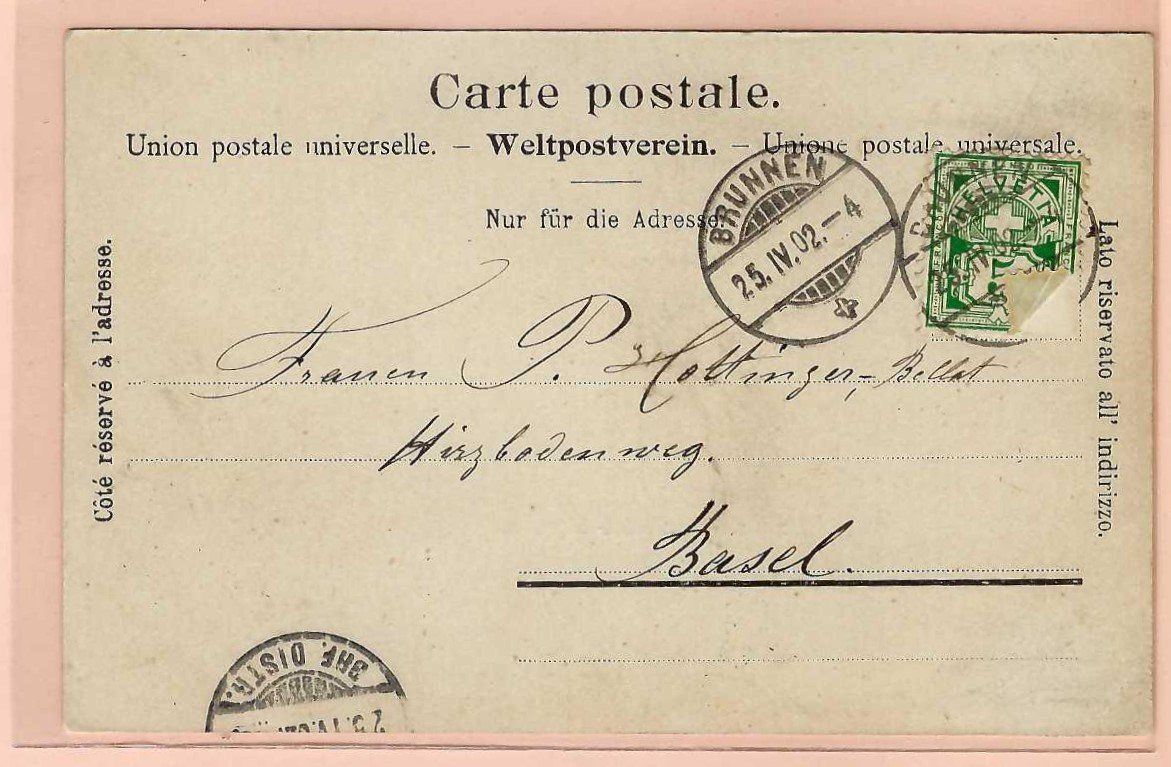 Carte postale.
Union postale universelle. – Weltpostverein. – Unione postale universale.
Nur für die Adresse.
Côté réservé à l'adresse.
Lato riservato all' indirizzo.
BRUNNEN
25.IV.02.–4
BRUNNEN
25.IV.02
HELVETIA
Frauen P. Hottinger-Bellat
Hirzbodenweg.
Basel.
BRF. DISTR.
25.IV.02